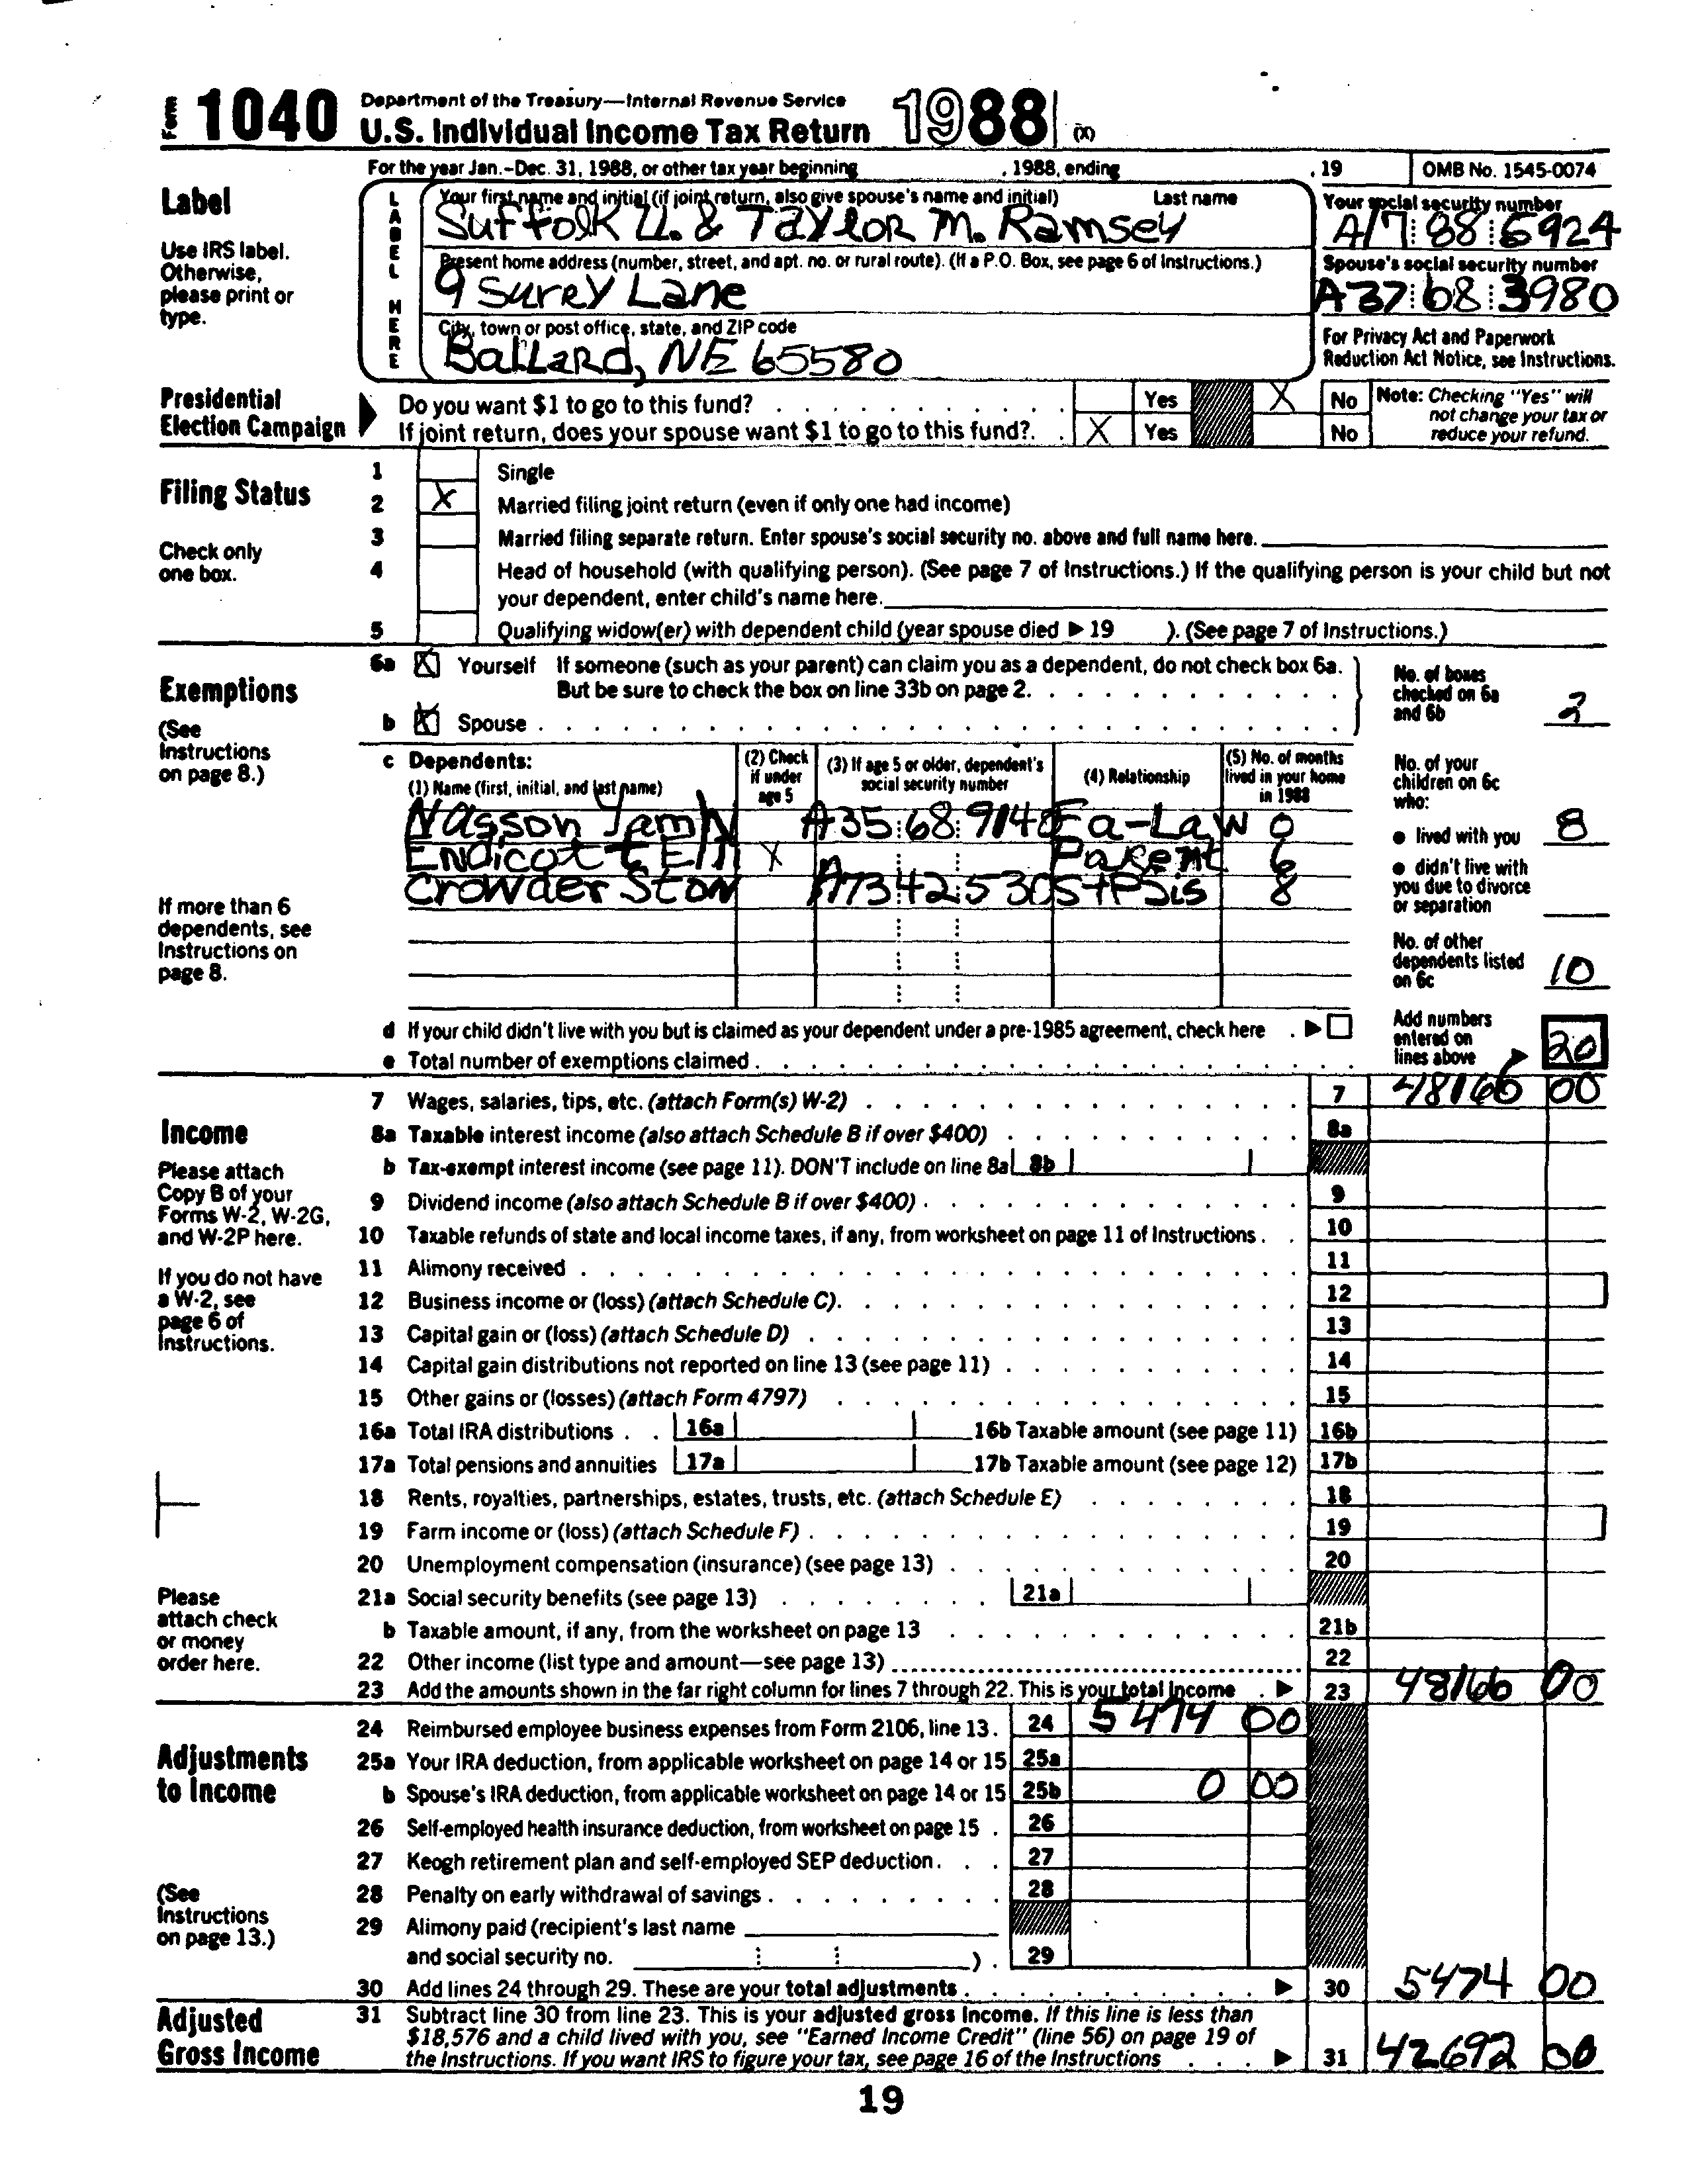 Form 1040 Department of the Treasury—Internal Revenue Service
U.S. Individual Income Tax Return 1988 (X)
For the year Jan.-Dec. 31, 1988, or other tax year beginning , 1988, ending , 19 OMB No. 1545-0074
Label
Use IRS label. Otherwise, please print or type.
LABEL HERE
Your first name and initial (if joint return, also give spouse's name and initial) Last name
Suffolk U. & Taylor M. Ramsey
Your social security number
A17:88:6924
Present home address (number, street, and apt. no. or rural route). (If a P.O. Box, see page 6 of Instructions.)
9 Surey Lane
Spouse's social security number
A37:68:3980
City, town or post office, state, and ZIP code
Ballard, NE 65580
For Privacy Act and Paperwork
Reduction Act Notice, see Instructions.
Presidential
Election Campaign
Do you want $1 to go to this fund? Yes X No
If joint return, does your spouse want $1 to go to this fund? X Yes No
Note: Checking "Yes" will
not change your tax or
reduce your refund.
Filing Status
Check only
one box.
1 Single
2 X Married filing joint return (even if only one had income)
3 Married filing separate return. Enter spouse's social security no. above and full name here.
4 Head of household (with qualifying person). (See page 7 of Instructions.) If the qualifying person is your child but not
your dependent, enter child's name here.
5 Qualifying widow(er) with dependent child (year spouse died ▶ 19 ). (See page 7 of Instructions.)
Exemptions
(See
Instructions
on page 8.)
6a X Yourself If someone (such as your parent) can claim you as a dependent, do not check box 6a.
But be sure to check the box on line 33b on page 2.
b X Spouse
No. of boxes
checked on 6a
and 6b 2
c Dependents:
(1) Name (first, initial, and last name)
(2) Check
if under
age 5
(3) If age 5 or older, dependent's
social security number
(4) Relationship
(5) No. of months
lived in your home
in 1988
Nasson Jam N A35:68:9148 Fa-Law 0
Endicott Ell X Parent 6
Crowder Stow A73 42:530 StPSis 8
No. of your
children on 6c
who:
● lived with you 8
● didn't live with
you due to divorce
or separation
No. of other
dependents listed
on 6c 10
If more than 6
dependents, see
Instructions on
page 8.
d If your child didn't live with you but is claimed as your dependent under a pre-1985 agreement, check here ▶
e Total number of exemptions claimed
Add numbers
entered on
lines above ▶ 20
Income
Please attach
Copy B of your
Forms W-2, W-2G,
and W-2P here.
If you do not have
a W-2, see
page 6 of
Instructions.
Please
attach check
or money
order here.
7 Wages, salaries, tips, etc. (attach Form(s) W-2) 7 48166 00
8a Taxable interest income (also attach Schedule B if over $400) 8a
b Tax-exempt interest income (see page 11). DON'T include on line 8a 8b
9 Dividend income (also attach Schedule B if over $400) 9
10 Taxable refunds of state and local income taxes, if any, from worksheet on page 11 of Instructions. 10
11 Alimony received 11
12 Business income or (loss) (attach Schedule C). 12
13 Capital gain or (loss) (attach Schedule D) 13
14 Capital gain distributions not reported on line 13 (see page 11) 14
15 Other gains or (losses) (attach Form 4797) 15
16a Total IRA distributions 16a 16b Taxable amount (see page 11) 16b
17a Total pensions and annuities 17a 17b Taxable amount (see page 12) 17b
18 Rents, royalties, partnerships, estates, trusts, etc. (attach Schedule E) 18
19 Farm income or (loss) (attach Schedule F) 19
20 Unemployment compensation (insurance) (see page 13) 20
21a Social security benefits (see page 13) 21a
b Taxable amount, if any, from the worksheet on page 13 21b
22 Other income (list type and amount—see page 13) 22
23 Add the amounts shown in the far right column for lines 7 through 22. This is your total income ▶ 23 48166 00
Adjustments
to Income
(See
Instructions
on page 13.)
24 Reimbursed employee business expenses from Form 2106, line 13. 24 5474 00
25a Your IRA deduction, from applicable worksheet on page 14 or 15 25a
b Spouse's IRA deduction, from applicable worksheet on page 14 or 15 25b 0 00
26 Self-employed health insurance deduction, from worksheet on page 15 26
27 Keogh retirement plan and self-employed SEP deduction. 27
28 Penalty on early withdrawal of savings 28
29 Alimony paid (recipient's last name
and social security no. ). 29
30 Add lines 24 through 29. These are your total adjustments ▶ 30 5474 00
Adjusted
Gross Income
31 Subtract line 30 from line 23. This is your adjusted gross income. If this line is less than
$18,576 and a child lived with you, see "Earned Income Credit" (line 56) on page 19 of
the Instructions. If you want IRS to figure your tax, see page 16 of the Instructions ▶ 31 42692 00
19